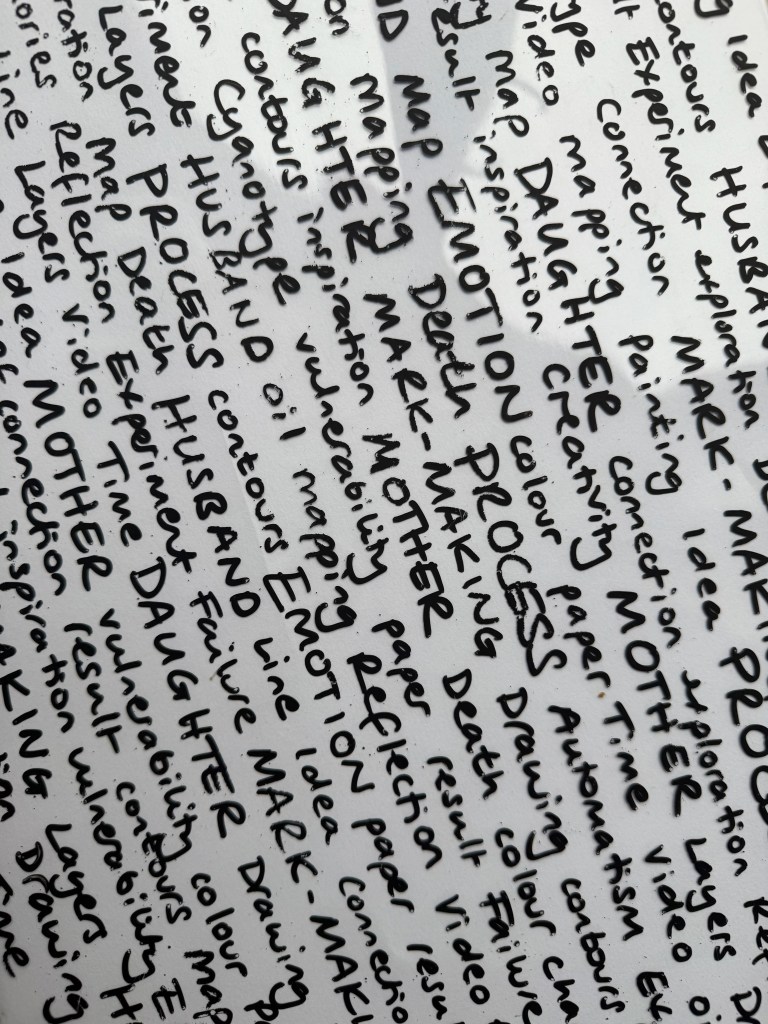 g Idea D
contours HUSBAN
t Experiment exploration DE
ype connection MARK-MAKIN
video mapping painting idea PROC
ry map DAUGHTER connection exploration Ref
result inspiration creativity MOTHER Layers Dr
ND Map EMOTION colour paper Time video oi
on mapping Death PROCESS Automatism Ex
DAUGHTER MARK-MAKING Drawing contours
contours inspiration MOTHER Death colour cha
on Cyanotype vulnerability paper result Failure
iment HUSBAND oil mapping Reflection video
Layers PROCESS contours EMOTION paper resu
ration Map Death HUSBAND Line Idea connectio
ories Reflection Experiment Failure MARK-MAKI
Line Layers video Time DAUGHTER Drawing p
Idea MOTHER vulnerability colour
connection result contours Map
inspiration vulnerability E
AKING Layers H
on Drawing